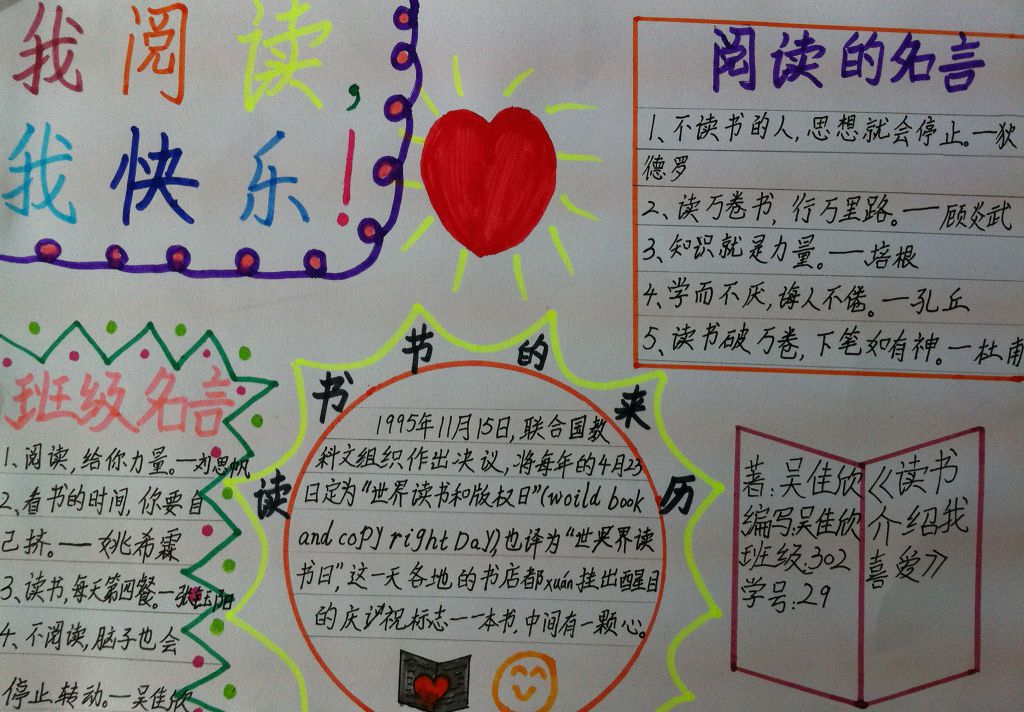 我阅读，
我快乐！
阅读的名言
1、不读书的人，思想就会停止。—狄
德罗
2、读万卷书，行万里路。——顾炎武
3、知识就是力量。——培根
4、学而不厌，诲人不倦。—孔丘
5、读书破万卷，下笔如有神。—杜甫
班级名言
1、阅读，给你力量。—刘思帆
2、看书的时间，你要自
己挤。——姚希霖
3、读书，每天第四餐。—张钰阳
4、不阅读，脑子也会
停止转动。—吴佳欣
读书节的来历
1995年11月15日，联合国教
科文组织作出决议，将每年的4月23
日定为“世界读书和版权日”(woild book
and copy right Day)，也译为“世界读
书日”，这一天各地的书店都xuán挂出醒目
的庆祝标志——一本书，中间有一颗心。
著：吴佳欣
编写：吴佳欣
班级：302
学号：29
《读书
介绍我
喜爱》